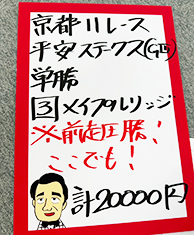 京都11レース
平安ステークス(GⅢ)
単勝
3 メイプルリッジ
※前走圧勝!
ここでも!
計20000円